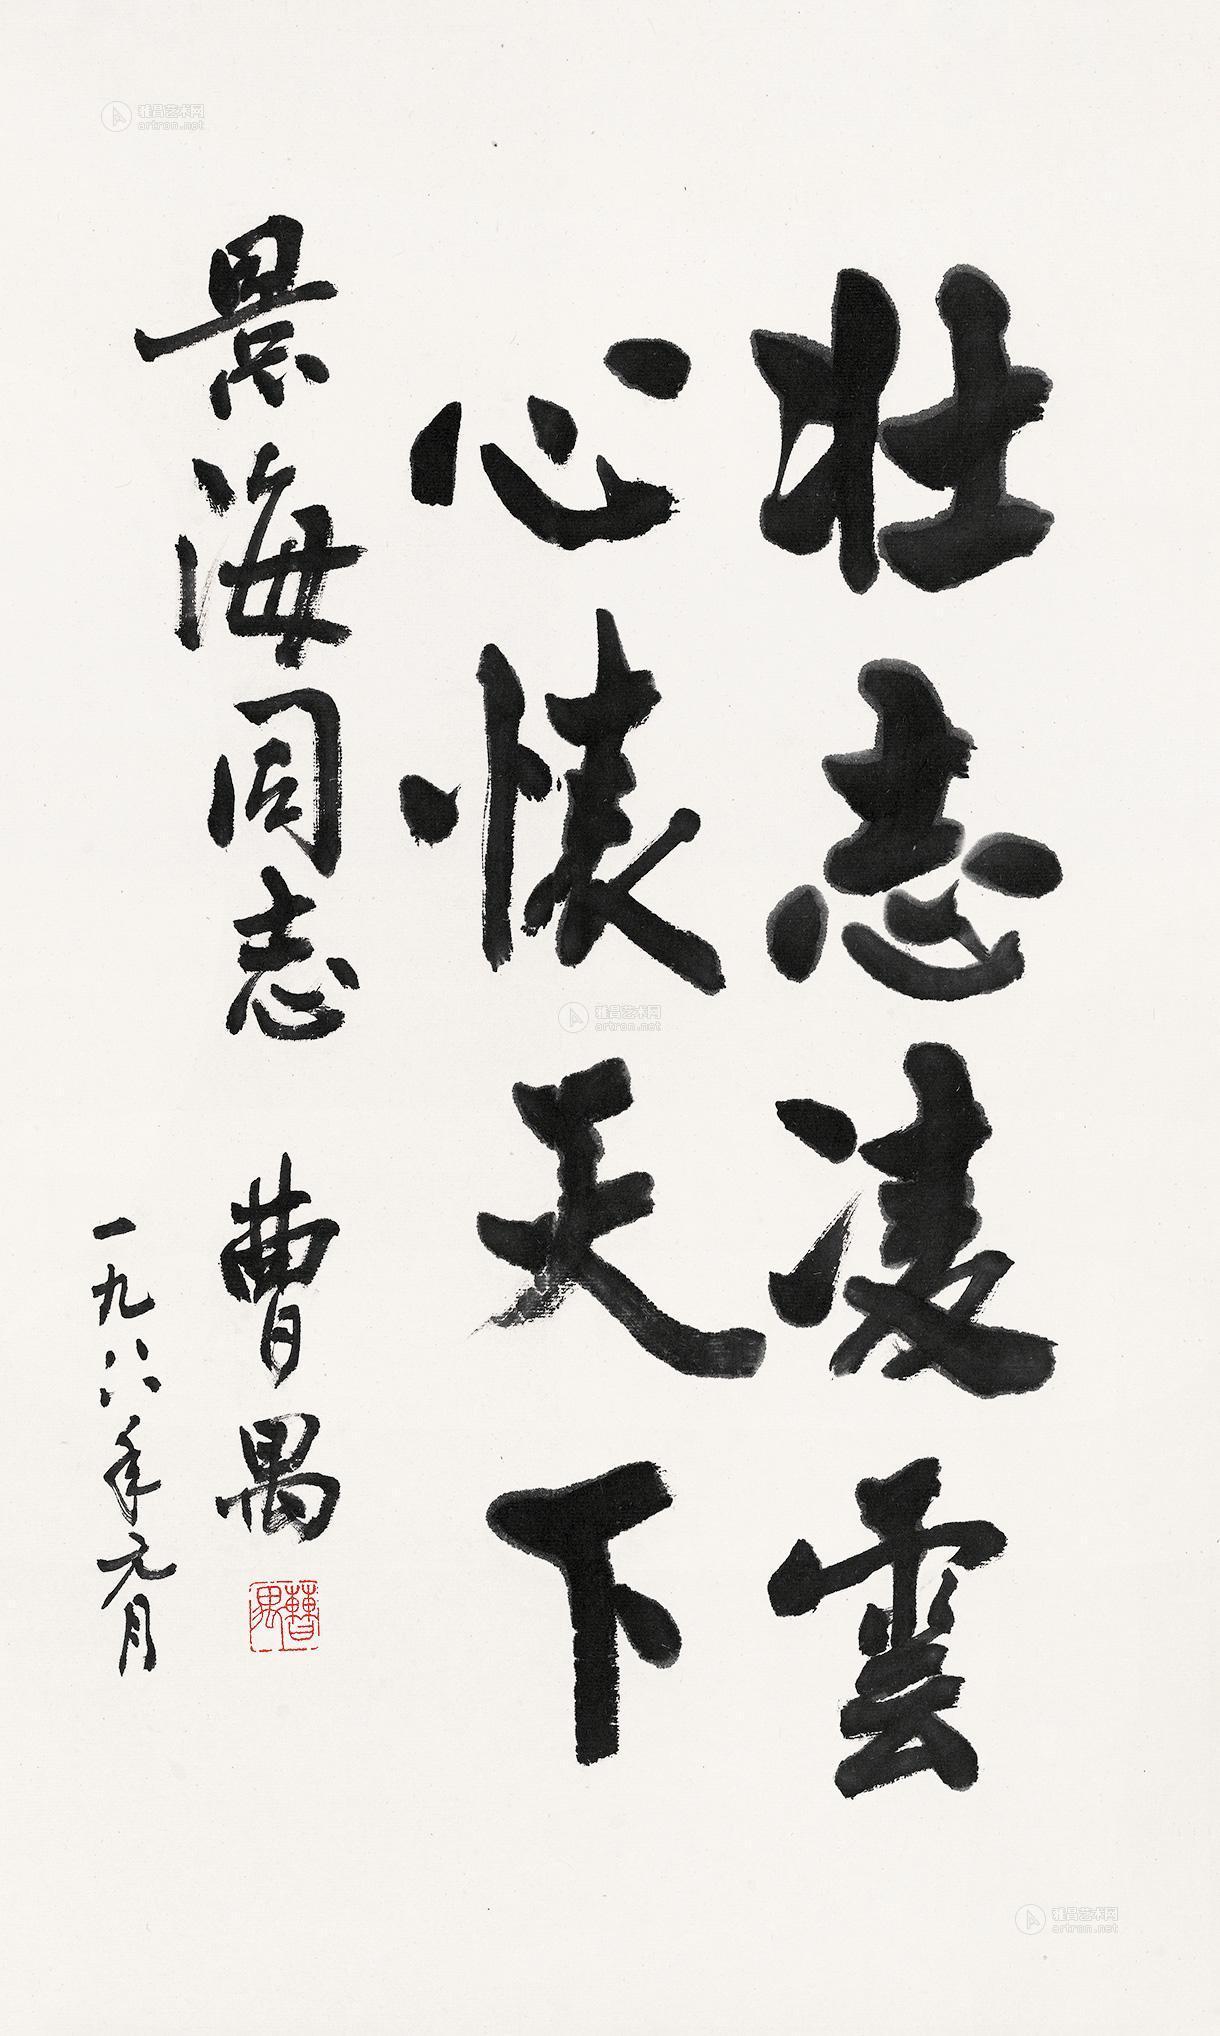 壮志凌雲
心懷天下
景海同志 曹禺
一九八八年元月
曹禺
雅昌艺术网
artron.net
雅昌艺术网
artron.net
雅昌艺术网
artron.net